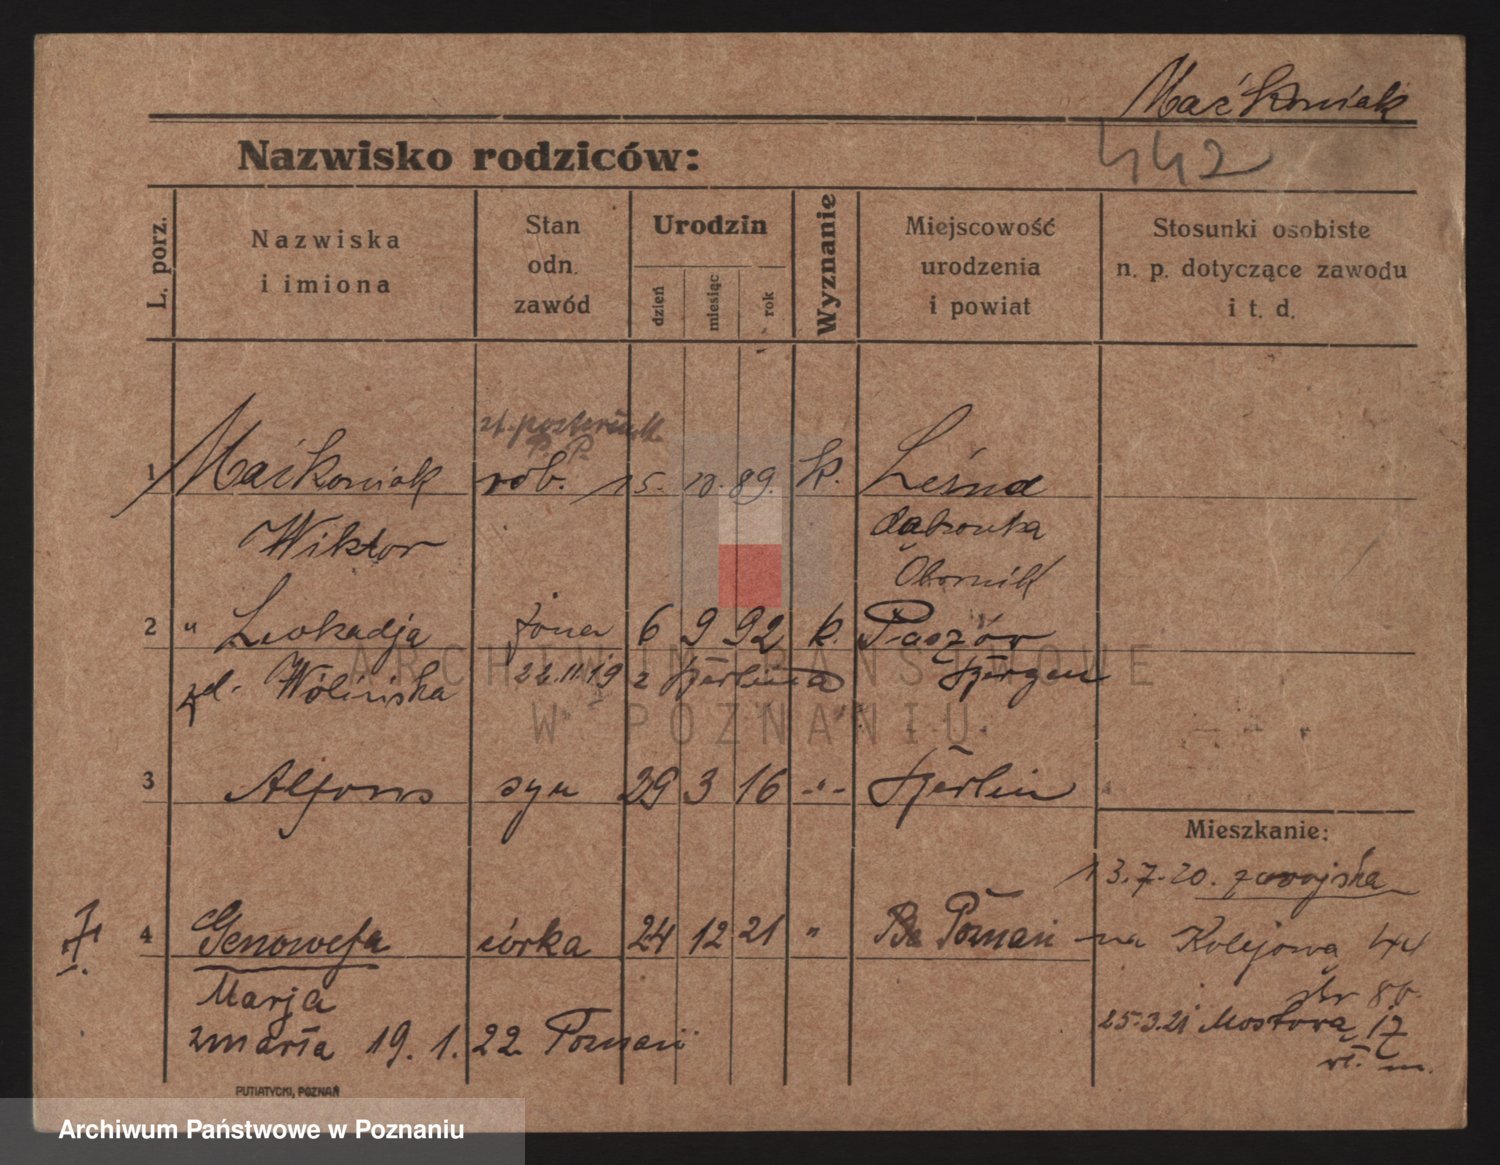 Maćkowiak
442
Nazwisko rodziców:
L. porz.
Nazwiska
i imiona
Stan
odn.
zawód
Urodzin
dzień
miesiąc
rok
Wyznanie
Miejscowość
urodzenia
i powiat
Stosunki osobiste
n. p. dotyczące zawodu
i t. d.
st. posterunk
P. P.
1 Maćkowiak rob. 15. 10. 89. k. Leśna
Wiktor dąbrowka
Obornik
2 " Leokadja żona 6 9 92 k.
zd. Wolińska 22.11.19 z Berlina
3 Alfons syn 29 3 16 -"- Berlin
Mieszkanie:
13.7.20.
4 Genowefa córka 24 12 21 " Poznań na Kolejową 44
Marja
25.3.21 Mostowa 17
zmarła 19. 1. 22. Poznań
PUTIATYCKI, POZNAŃ
ARCHIWUM PAŃSTWOWE
W POZNANIU
Archiwum Państwowe w Poznaniu